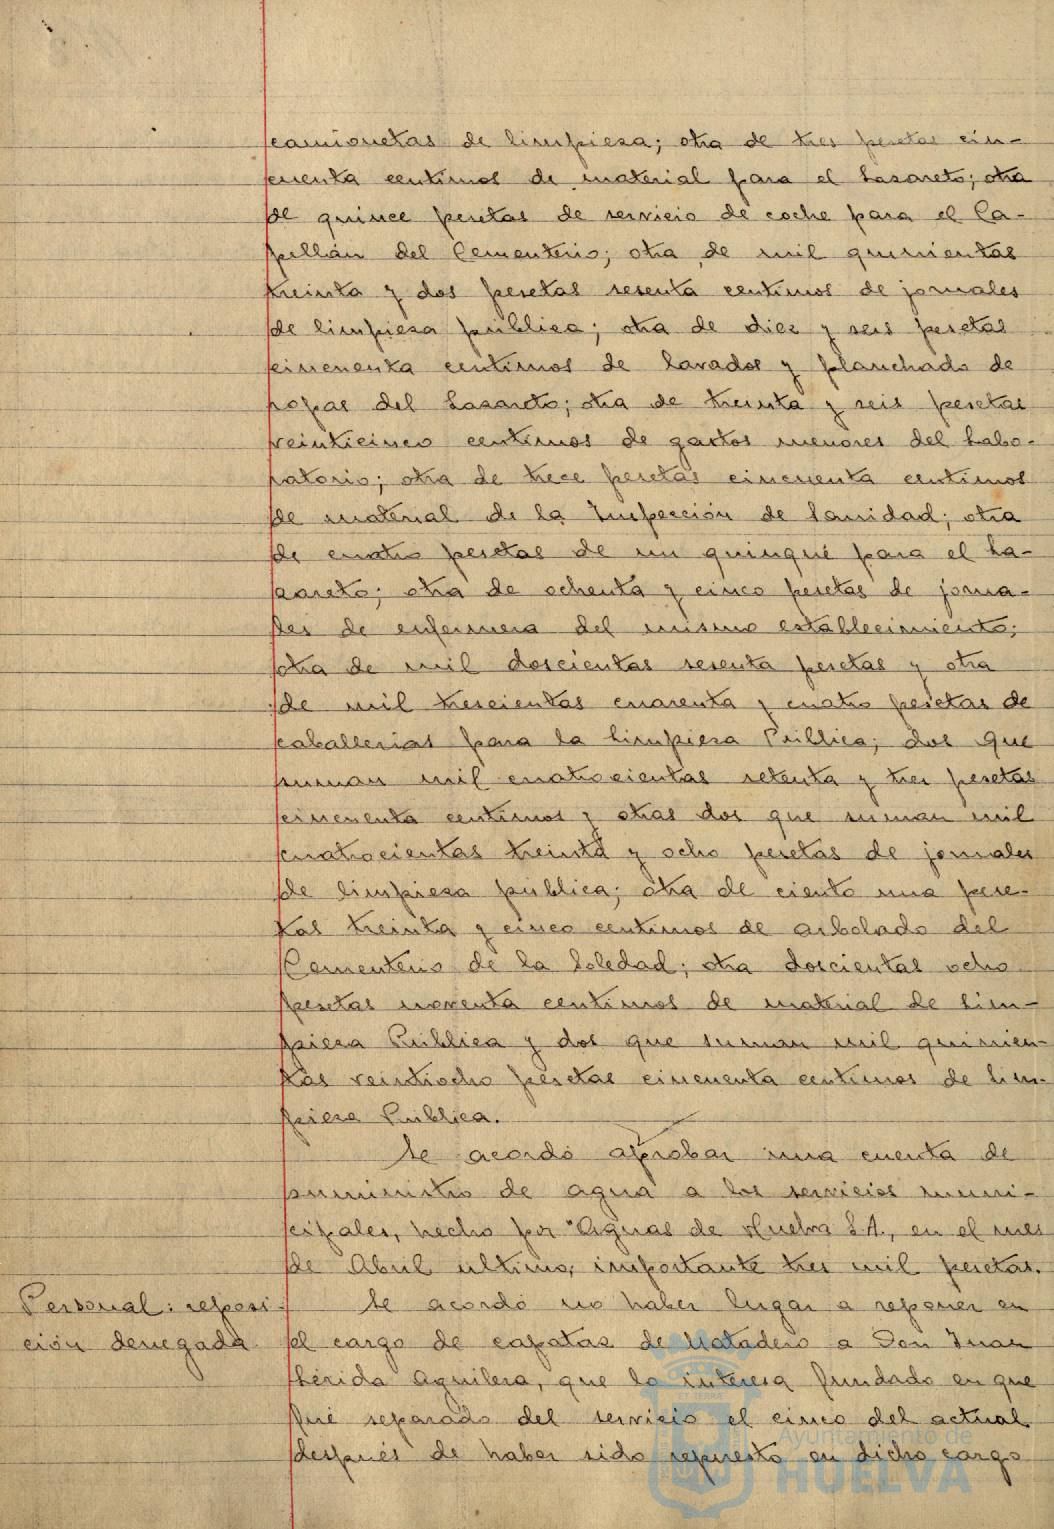 camionetas de limpieza; otra de tres pesetas cin-
cuenta centimos de material para el Lazareto; otra
de quince pesetas de servicio de coche para el Ca-
pellán del Cementerio; otra de mil quinientas
treinta y dos pesetas sesenta centimos de jornales
de limpieza pública; otra de diez y seis pesetas
cincuenta centimos de lavados y planchado de
ropas del Lazareto; otra de treinta y seis pesetas
veinticinco centimos de gastos menores del Labo-
ratorio; otra de trece pesetas cincuenta centimos
de material de la Inspección de Sanidad; otra
de cuatro pesetas de un quinqué para el La-
zareto; otra de ochenta y cinco pesetas de jorna-
les de enfermera del mismo establecimiento;
otra de mil doscientas sesenta pesetas y otra
de mil trescientas cuarenta y cuatro pesetas de
caballerias para la limpieza Pública; dos que
suman mil cuatrocientas setenta y tres pesetas
cincuenta centimos y otras dos que suman mil
cuatrocientas treinta y ocho pesetas de jornales
de limpieza pública; otra de ciento una pese-
tas treinta y cinco centimos de arbolado del
Cementerio de la Soledad; otra doscientas ocho
pesetas noventa centimos de material de Lim-
pieza Pública y dos que suman mil quinien-
tas veintiocho pesetas cincuenta centimos de Lim-
pieza Pública.
Se acordó aprobar una cuenta de
suministro de agua a los servicios muni-
cipales, hecho por "Aguas de Huelva S.A., en el mes
de Abril ultimo, importante tres mil pesetas.
Personal: reposi- Se acordó no haber lugar a reponer en
ción denegada el cargo de capataz de Matadero a Don Juan
Mérida Aguilera, que lo interesa fundado en que
fué separado del servicio el cinco del actual
después de haber sido repuesto en dicho cargo
Ayuntamiento de
HUELVA